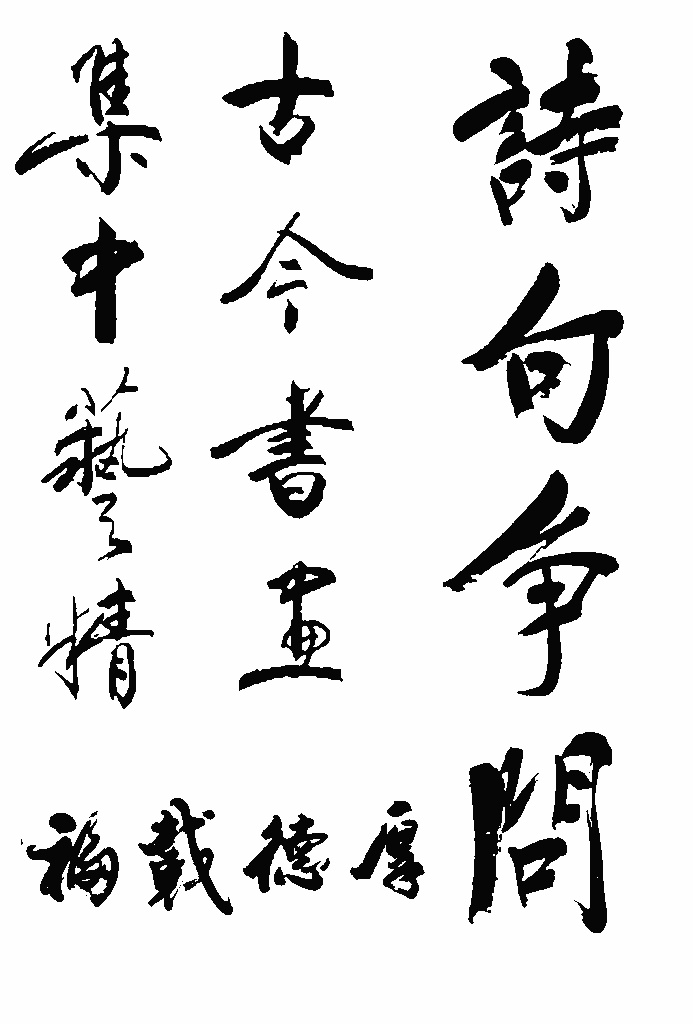 詩句争問
古今書画
集中藝精
厚德戴福